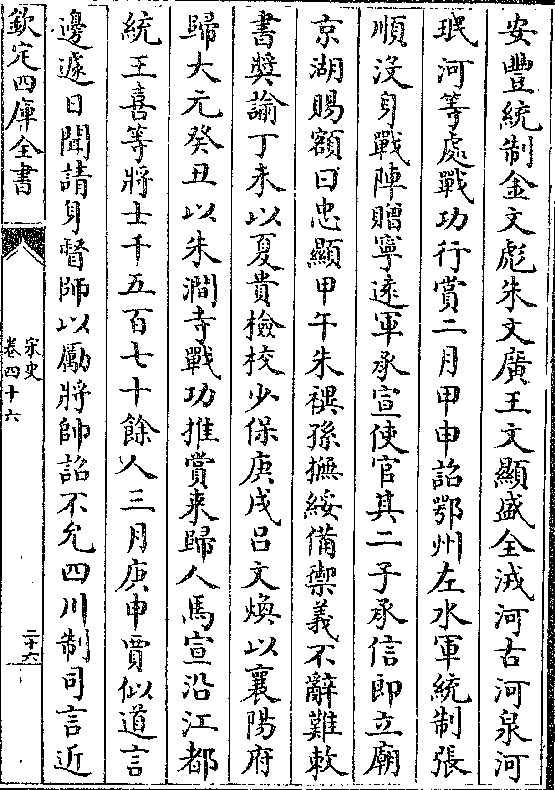 安豐統制金文彪朱文廣王文顯盛全㳦河古河泉河
珉河等處戰功行賞二月甲申詔鄂州左水軍統制張
順沒身戰陣贈寧逺軍承宣使官其二子承信郎立廟
京湖賜額曰忠顯甲午朱禩孫撫綏備禦義不辭難敕
書奬諭丁未以夏貴檢校少保庚戌吕文煥以襄陽府
歸大元癸丑以朱澗寺戰功推賞来歸人馬宣沿江都
統王喜等將士千五百七十餘人三月庚申賈似道言
邊遽日聞請身督師以勵將帥詔不允四川制司言近
欽定四庫全書
宋史
卷四十六
二十六